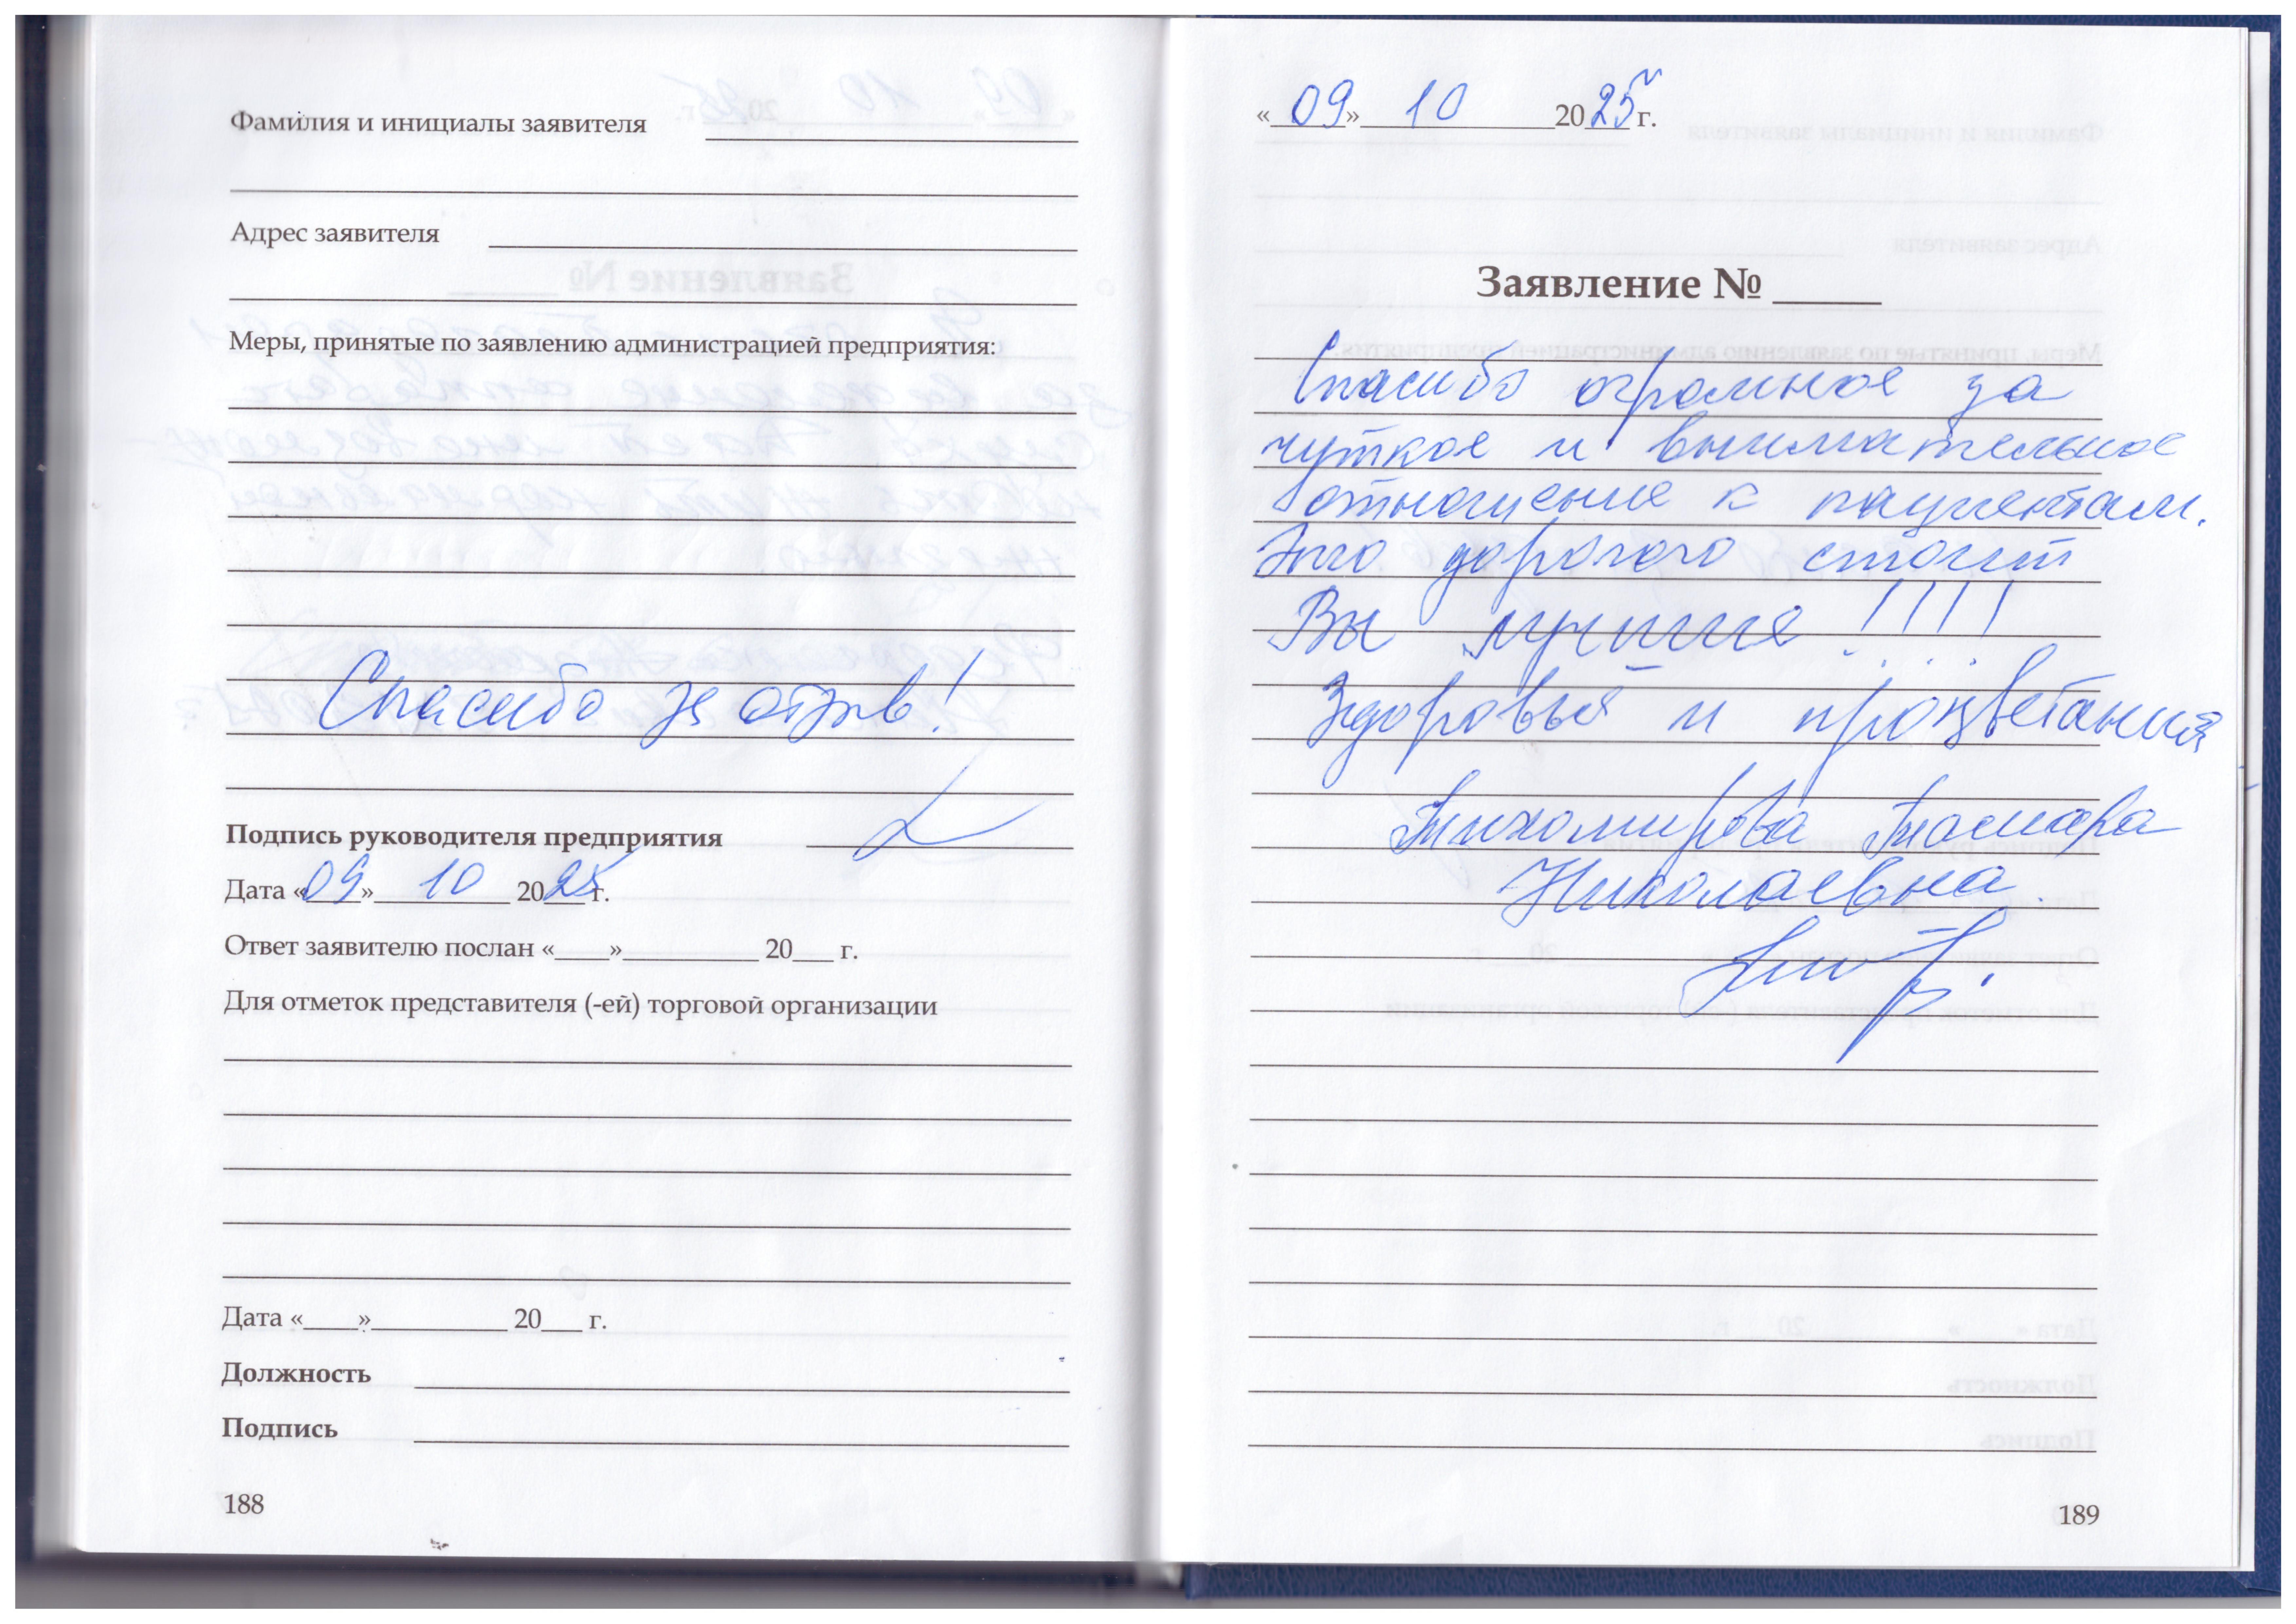 Фамилия и инициалы заявителя
Адрес заявителя
Меры, принятые по заявлению администрацией предприятия:
Спасибо за отзыв!
Подпись руководителя предприятия
Дата «09» 10 2025 г.
Ответ заявителю послан «____»__________ 20___ г.
Для отметок представителя (-ей) торговой организации
Дата «____»__________ 20___ г.
Должность
Подпись
188
«09» 10 2025 г.
Заявление № _____
Спасибо огромное за
чуткое и внимательное
отношение к пациентам.
Это дорогого стоит
Вы лучшие !!!!
Здоровья и процветания
Тихомирова Тамара
Николаевна
189